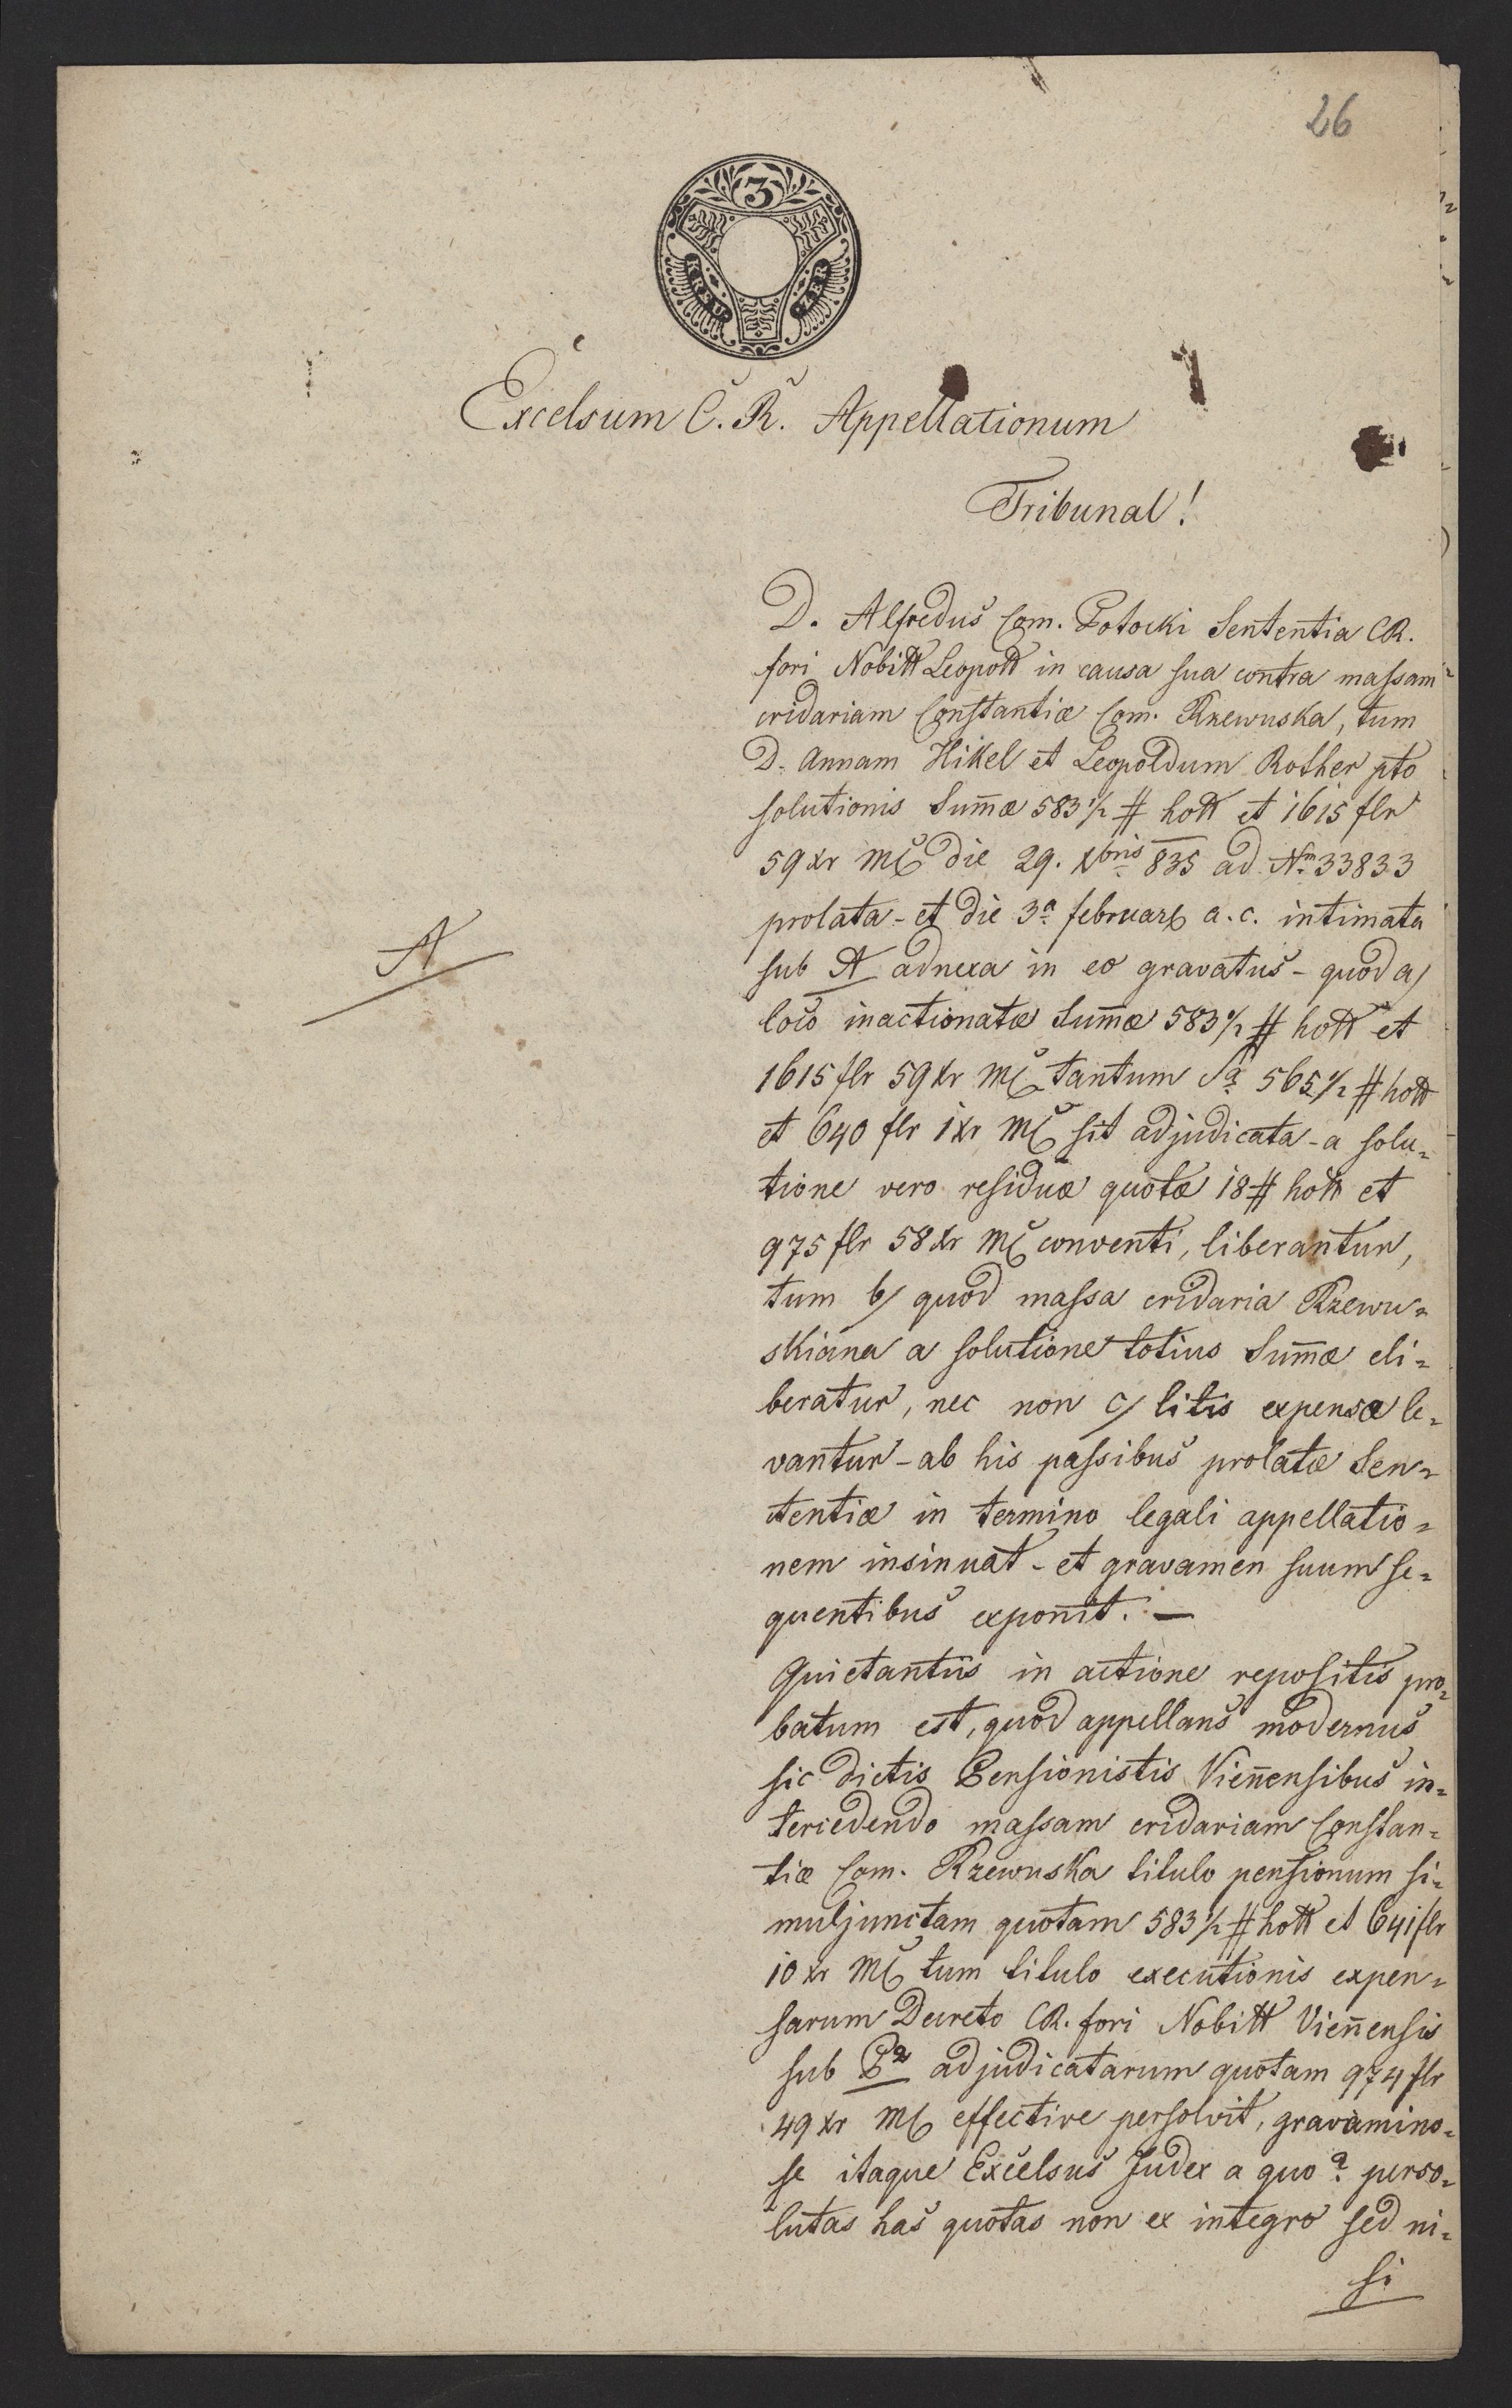 26
3
KREU ZER
Excelsum C. R. Appellationum
Tribunal!
D. Alfredus Com. Potocki Sententia CR.
fori Nobill Leopoll in causa sua contra massam
cridariam Constantiæ Com. Rzewuska, tum
D. Annam Hikel et Leopoldum Rother pto
solutionis Sum̄æ 583 1/2 # holl et 1615 flr
59 xr MC die 29. Xbris 835 ad Nm 33833
prolata - et die 3a februar a. c. intimata
A
sub A adnexa in eo gravatus - quod a/
loco inactionatæ Sum̄æ 583 1/2 # holl et
1615 flr 59 xr MC tantum Sa 565 1/2 # holl
et 640 flr 1 xr MC sit adjudicata - a solu=
tione vero residuæ quotæ 18 # holl et
975 flr 58 xr MC conventi, liberantur,
tum b/ quod massa cridaria Rzewu=
skiana a solutione totius Sum̄æ eli=
beratur, nec non c/ litis expensæ le=
vantur - ab his passibus prolatæ Sen=
tentiæ in termino legali appellatio=
nem insinuat - et gravamen suum se=
quentibus exponit. —
Quietantiis in actione repositis pro=
batum est, quod appellans modernus
sic dictis Pensionistis Vien̄ensibus in=
tercedendo massam cridariam Constan=
tiæ Com. Rzewuska titulo pensionum si=
muljunctam quotam 583 1/2 # holl et 641 flr
10 xr MC tum titulo executionis expen=
sarum Decreto CR. fori Nobill Vien̄ensis
sub P2 adjudicatarum quotam 974 flr
49 xr MC effective persolvit, gravamino=
se itaque Excelsus Judex a quo a perso=
lutas has quotas non ex integro sed ni=
si